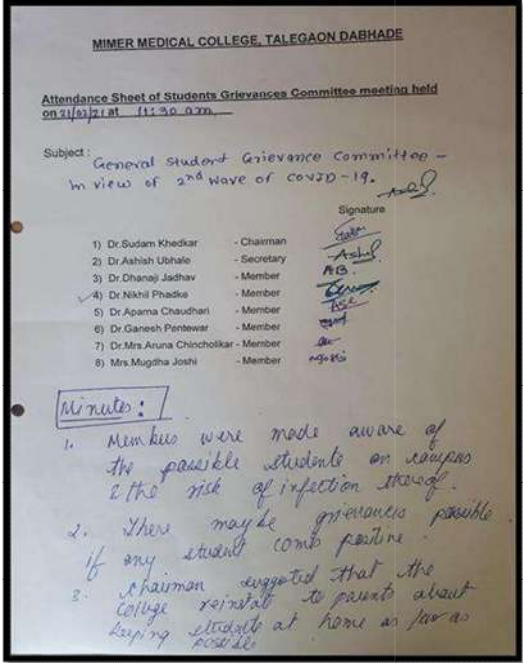 MIMER MEDICAL COLLEGE, TALEGAON DABHADE
Attendance Sheet of Students Grievances Committee meeting held
on 21/02/21 at 11:30 a.m.
Subject :
General Student Grievance Committee -
In view of 2nd wave of COVID-19.
Signature
1) Dr.Sudam Khedkar - Chairman
2) Dr.Ashish Ubhale - Secretary
3) Dr.Dhanaji Jadhav - Member
4) Dr.Nikhil Phadke - Member
5) Dr.Aparna Chaudhari - Member
6) Dr.Ganesh Pentewar - Member
7) Dr.Mrs.Aruna Chincholikar - Member
8) Mrs.Mugdha Joshi - Member
Minutes :
1. Members were made aware of
the possible students on campus
& the risk of infection thereof.
2. There may be grievances possible
if any student comes positive.
3. Chairman suggested that the
college to parents about
keeping students at home as far as
possible